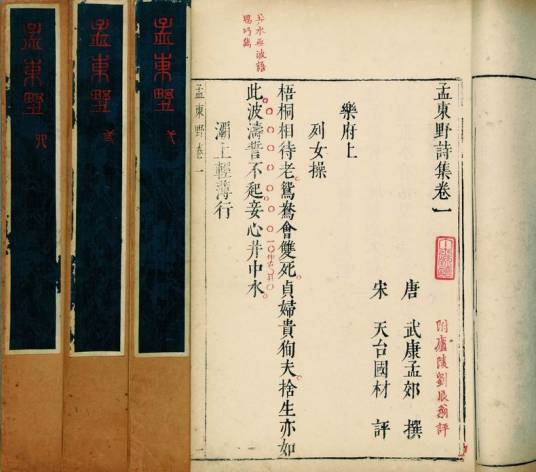 孟東野
孟東野
孟東野
孟東野詩集卷一
唐 武康孟郊 撰
宋 天台國材 評
附廬陵劉辰翁評
樂府上
列女操
梧桐相待老鴛鴦會雙死貞婦貴狥夫捨生亦如
此波濤誓不起妾心井中水
灞上輕薄行
孟東野卷一